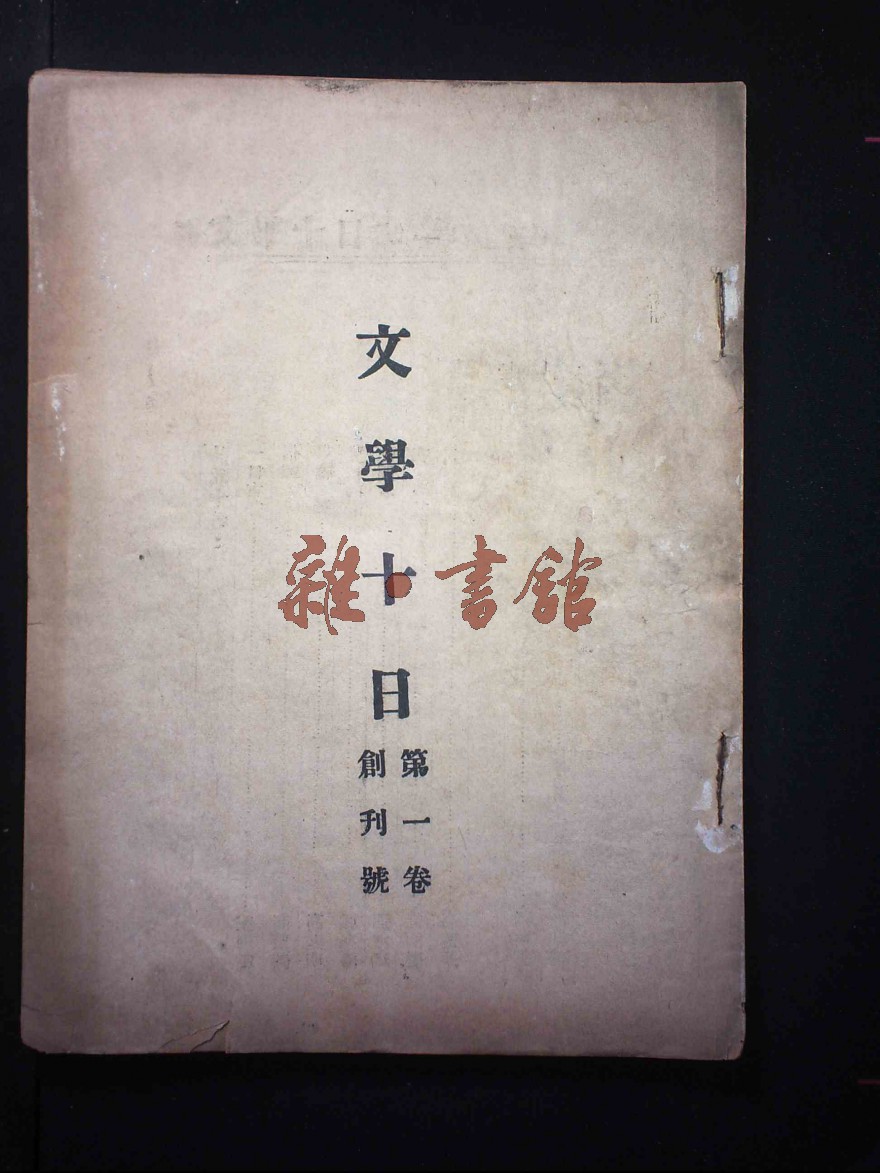 文學十日
第一卷
創刊號
雜·書館